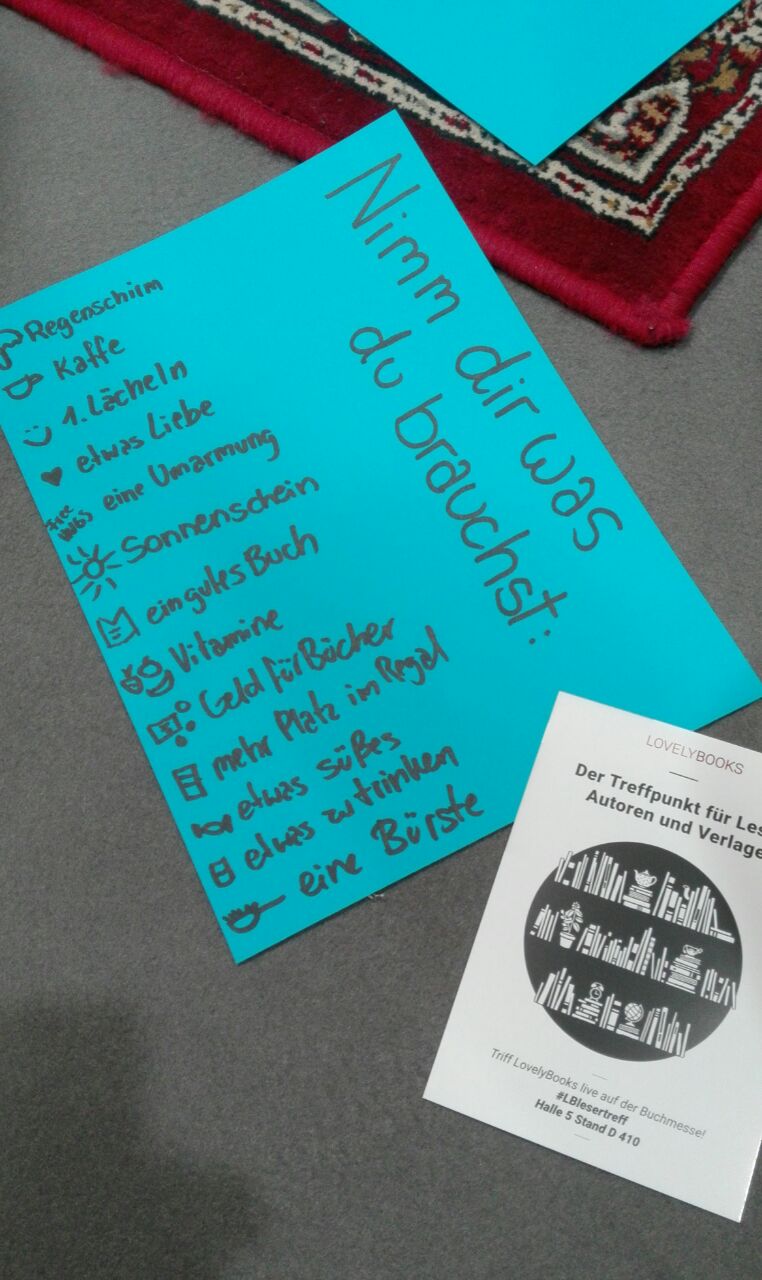 Nimm dir was
du brauchst:
Regenschirm
Kaffe
1. Lächeln
etwas Liebe
free
HUGS eine Umarmung
Sonnenschein
ein gutes Buch
Vitamine
Geld für Bücher
mehr Platz im Regal
etwas süßes
etwas zu trinken
eine Bürste
LOVELYBOOKS
Der Treffpunkt für Les
Autoren und Verlage
Triff LovelyBooks live auf der Buchmesse!
#LBlesertreff
Halle 5 Stand D 410